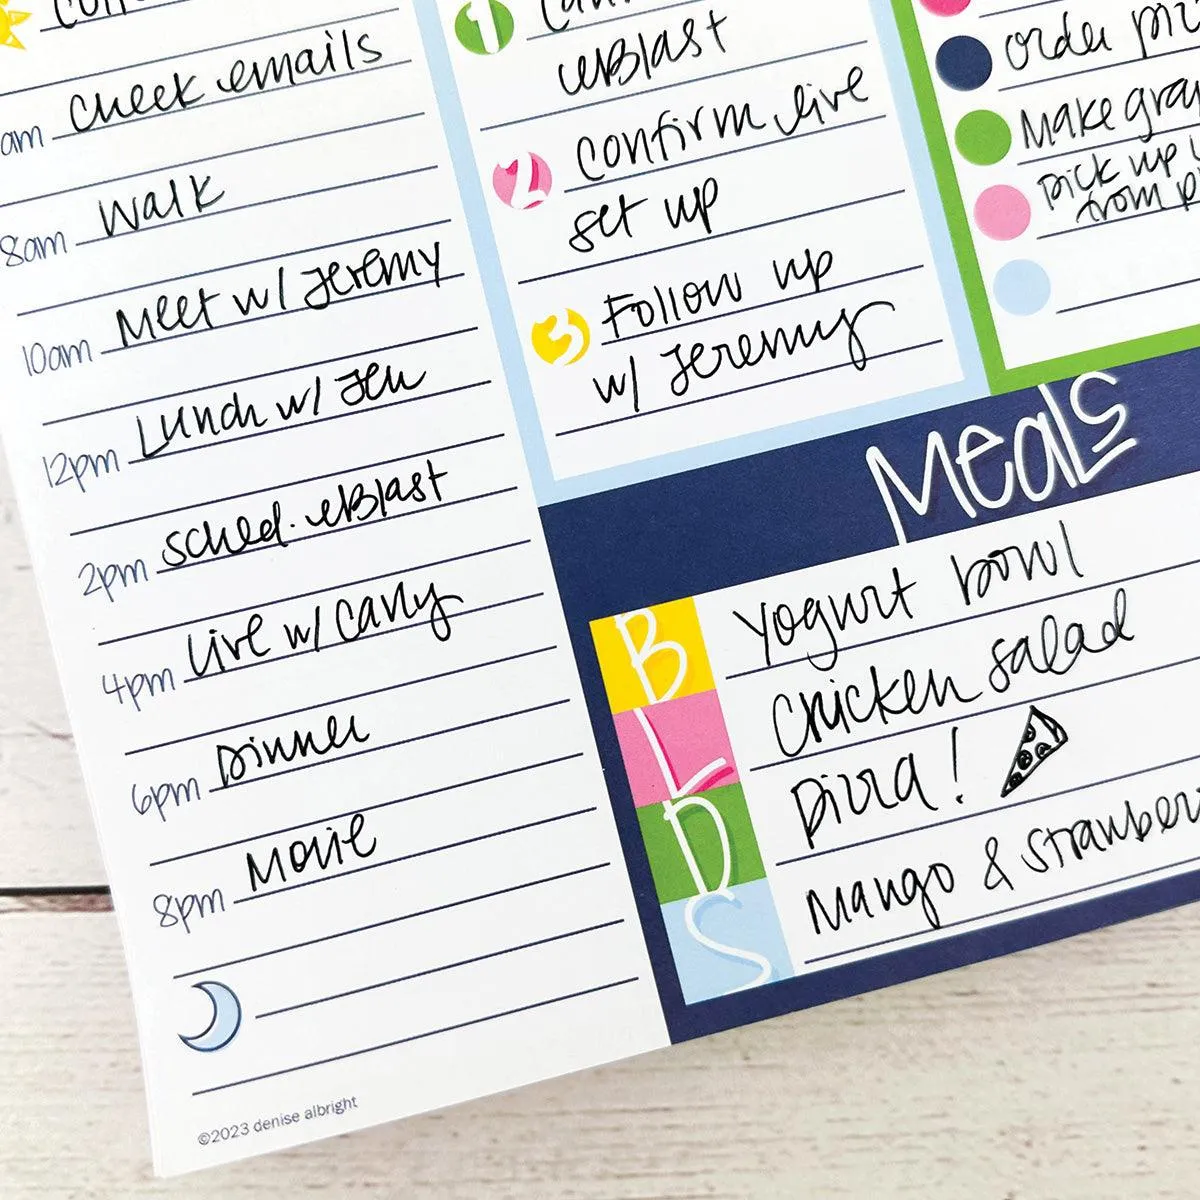 check emails
am
walk
8am
Meet w/ Jeremy
10am
Lunch w/ Jen
12pm
sched. eBlast
2pm
Live w/ Carly
4pm
Dinner
6pm
Movie
8pm
©2023 denise albright
1
eBlast
2 Confirm live
set up
3 Follow up
w/ Jeremy
order
Make
pick up
from
Meals
B Yogurt bowl
L Chicken salad
D pizza!
S Mango & strawber